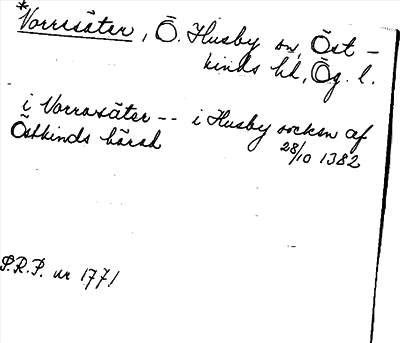 *Vorrsäter, Ö. Husby sn, Öst-
kinds hd, Ög. l.
i Vorrasäter -- i Husby socken af
Östkinds härad 28/10 1382
S.R.P. nr 1771